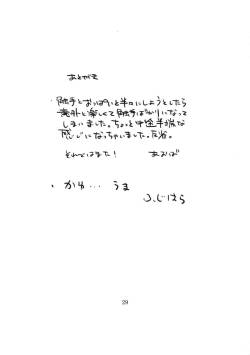 あとがき
・触手とおっぱいと半々にしようとしたら
意外と楽しくて触手ばかりになって
しまいました。ちょっと中途半端な
感じになっちゃいました。反省。
それではまた！ あおば
・かゆ… うま
ふじはら
29